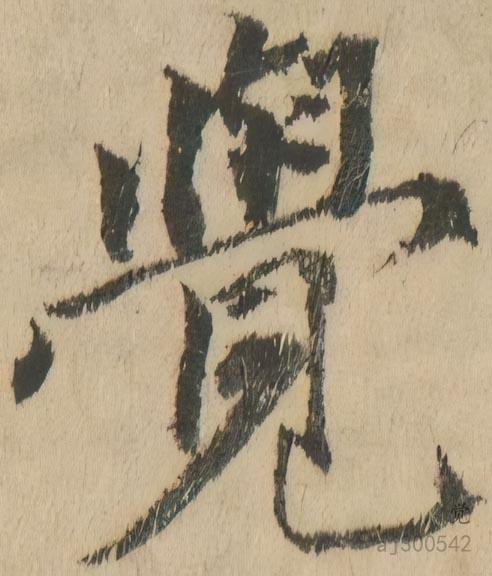 覺
觉
aj300542